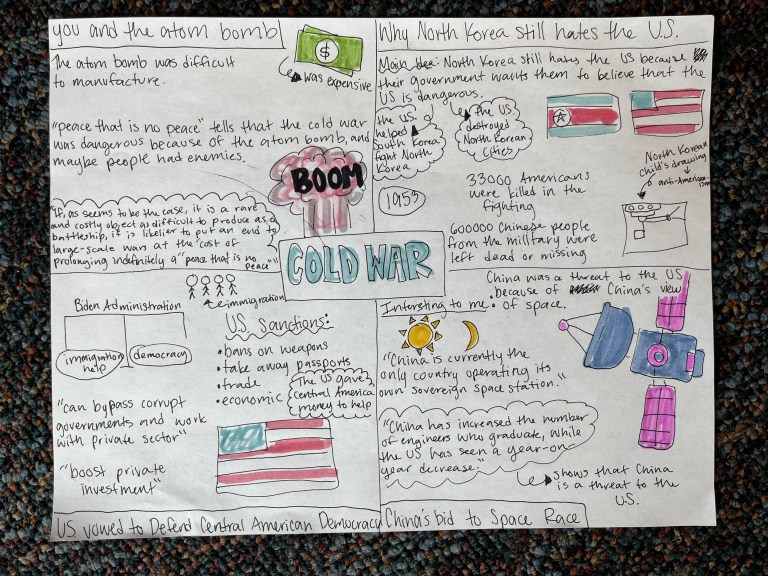 you and the atom bomb
The atom bomb was difficult
to manufacture.
$
was expensive
"peace that is no peace" tells that the cold war
was dangerous because of the atom bomb, and
maybe people had enemies.
"If, as seems to be the case, it is a rare
and costly object as difficult to produce as a
battleship, it is likelier to put an end to
large-scale wars at the cost of
prolonging indefinitely a "peace that is no
peace""
BOOM
COLD WAR
Why North Korea still hates the U.S.
Main Idea: North Korea still hates the US because
their government wants them to believe that the
US is dangerous.
the U.S.
helped
South Korea
fight North
Korea
the U.S.
destroyed
North Korean
Cities
1953
33060 Americans
were killed in the
fighting
600000 Chinese people
from the military were
left dead or missing
North Korean
child's drawing
anti-American-
ism
Biden Administration
immigration
help
democracy
immigration
U.S. Sanctions:
• bans on weapons
• take away passports
• trade
• economic
The US gave
Central America
money to help
"can bypass corrupt
governments and work
with private sector"
"boost private
investment"
US vowed to Defend Central American Democracy
China was a threat to the US
• because of China's view
• of space.
Interesting to me:
"China is currently the
only country operating its
own sovereign space station."
"China has increased the number
of engineers who graduate, while
the US has seen a year-on-
year decrease."
shows that China
is a threat to the
U.S.
China's bid to Space Race